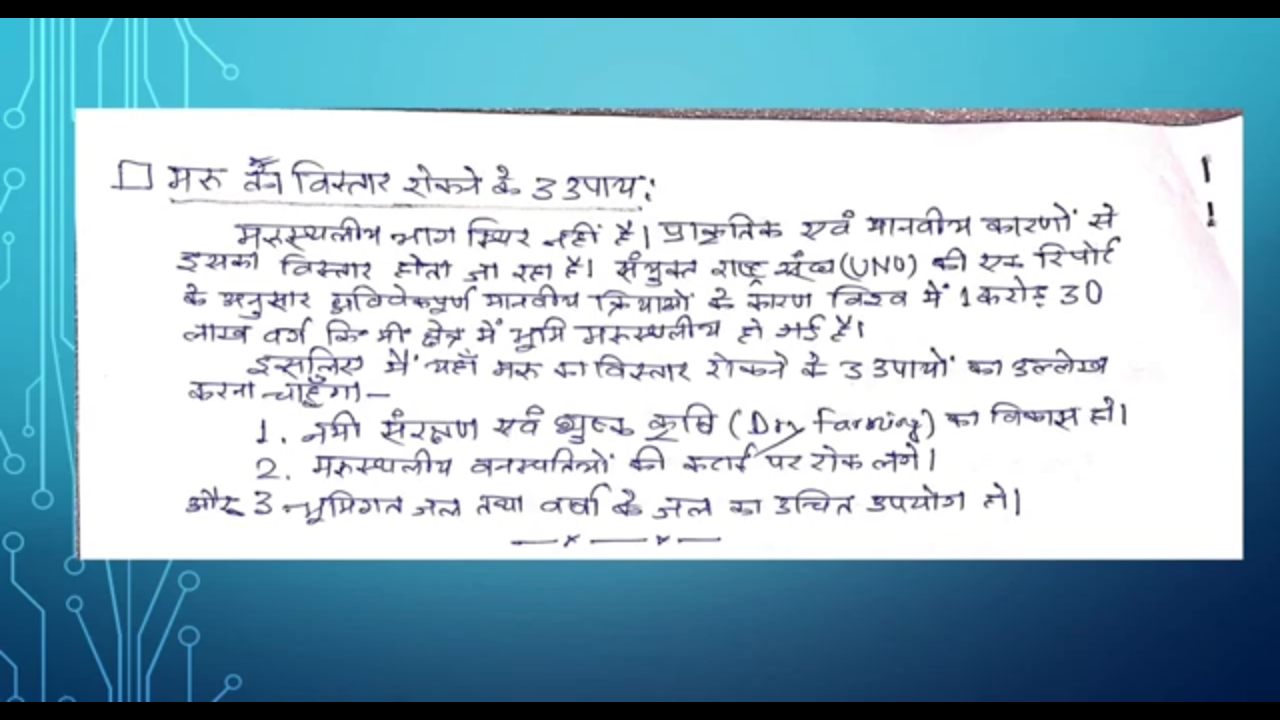 □ मरु का विस्तार रोकने के 3 उपाय:
मरुस्थलीय भाग स्थिर नहीं है। प्राकृतिक एवं मानवीय कारणों से
इसका विस्तार होता जा रहा है। संयुक्त राष्ट्र संघ (UNO) की एक रिपोर्ट
के अनुसार अविवेकपूर्ण मानवीय क्रियाओं के कारण विश्व में 1 करोड़ 30
लाख वर्ग कि॰ मी॰ क्षेत्र में भूमि मरुस्थलीय हो गई है।
इसलिए मैं यहाँ मरु का विस्तार रोकने के 3 उपायों का उल्लेख
करना चाहूँगा।—
1. नमी संरक्षण एवं शुष्क कृषि (Dry farming) का विकास हो।
2. मरुस्थलीय वनस्पतियों की कटाई पर रोक लगे।
और 3 भूमिगत जल तथा वर्षा के जल का उचित उपयोग हो।